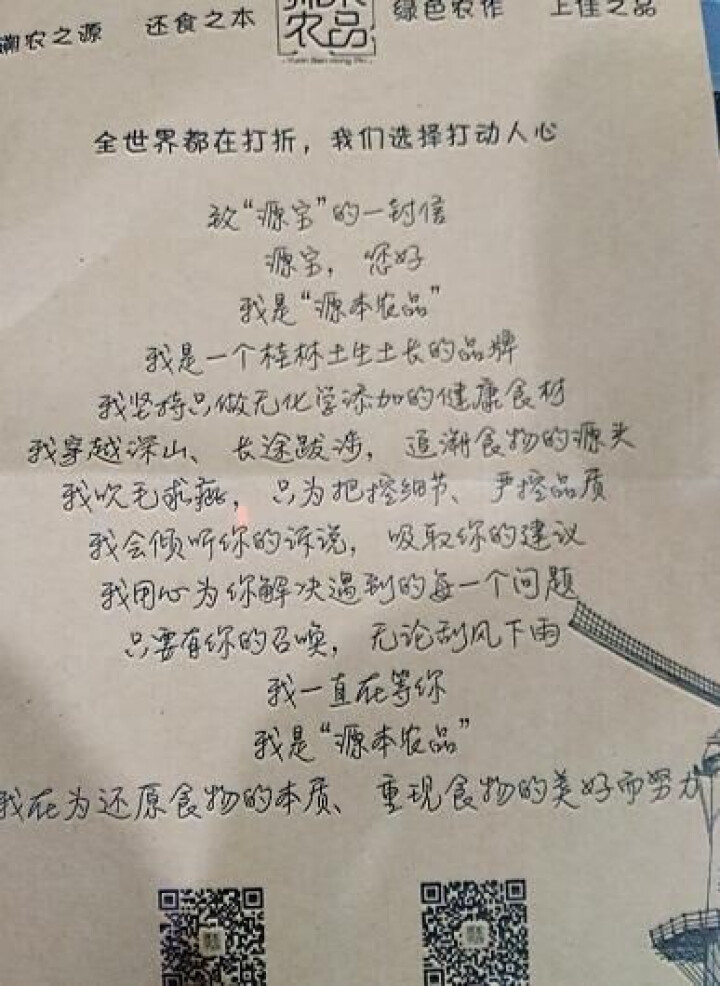 溯农之源 还食之本 农品 绿色农作 上佳之品
Yuan Ben Nong Pin
全世界都在打折，我们选择打动人心
致“源宝”的一封信
源宝，您好
我是“源本农品”
我是一个桂林土生土长的品牌
我坚持只做无化学添加的健康食材
我穿越深山、长途跋涉，追溯食物的源头
我吹毛求疵，只为把控细节、严控品质
我会倾听你的诉说，吸取你的建议
我用心为你解决遇到的每一个问题
只要有你的召唤，无论刮风下雨
我一直在等你
我是“源本农品”
我在为还原食物的本质、重现食物的美好而努力